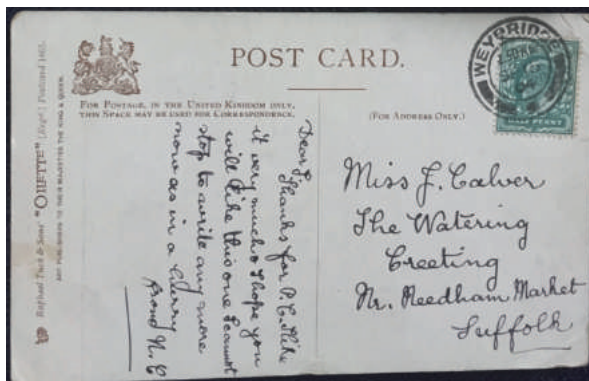 POST CARD.
FOR POSTAGE, IN THE UNITED KINGDOM ONLY,
THIS SPACE MAY BE USED FOR CORRESPONDENCE.
(FOR ADDRESS ONLY.)
WEYBRIDGE
HALF PENNY
Raphael Tuck & Sons' "OILETTE" [Regd.] Postcard
ART PUBLISHERS TO THEIR MAJESTIES THE KING & QUEEN.
Dear
Thanks for P.C. I like
it very much & hope you
will like this one I cannot
stop to write any more
now as in a hurry
Miss J. Calver
The Watering
Creeting
Nr. Needham Market
Suffolk